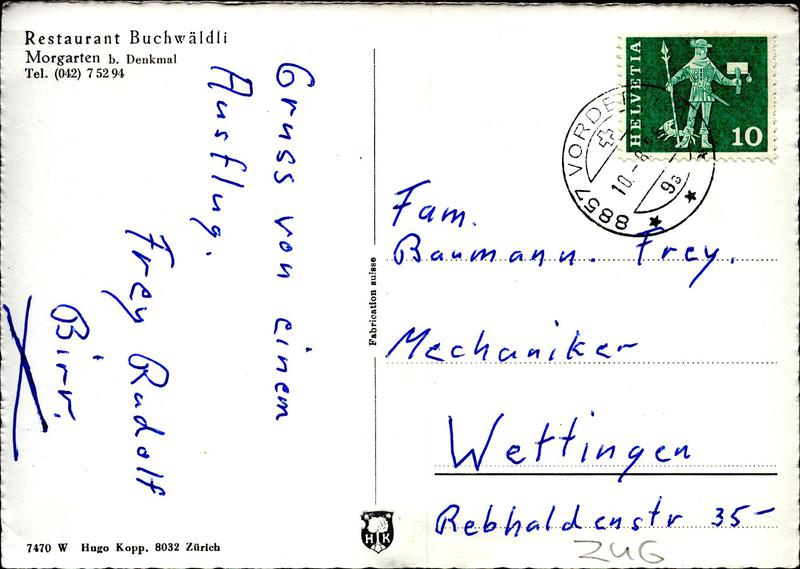 Restaurant Buchwäldli
Morgarten b. Denkmal
Tel. (042) 7 52 94
Gruss von einem
Ausflug.
Frey Rudolf
Birr.
7470 W Hugo Kopp, 8032 Zürich
Fabrication suisse
HK
HELVETIA
10
8857 VORDE
10.-8.
Fam.
Baumann. Frey.
Mechaniker
Wettingen
Rebhaldenstr 35-
ZUG